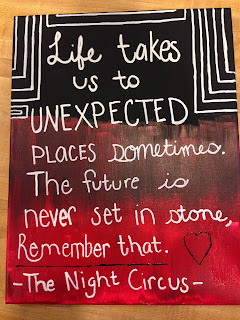 Life takes
us to
UNEXPECTED
PLACES sometimes.
The future is
never set in stone,
Remember that.
-The Night Circus-